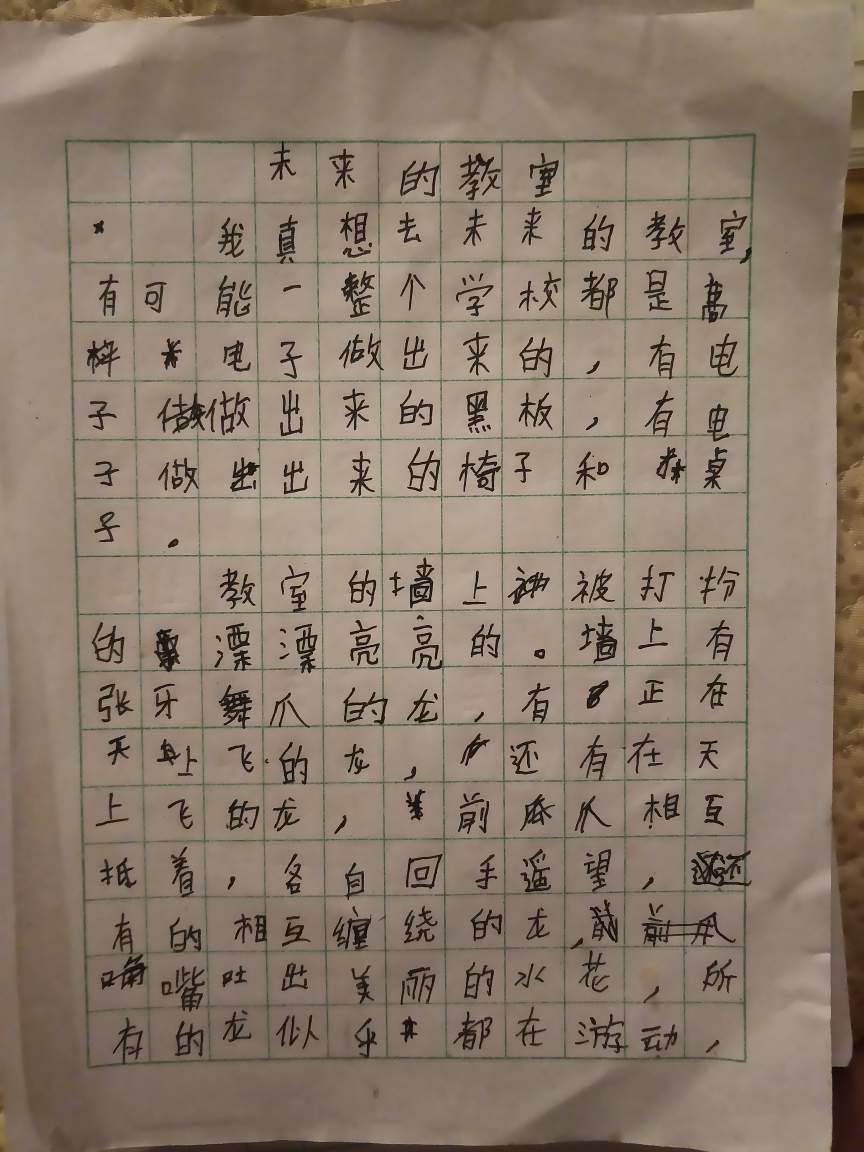 未来的教室
我真想去未来的教室,
有可能一整个学校都是高
电子做出来的,有电
子做出来的黑板,有电
子做出来的椅子和桌
子。
教室的墙上被打扮
的漂漂亮亮的。墙上有
张牙舞爪的龙,有正在
天上飞的龙,还有在天
上飞的龙,前爪相互
抵着,各自回手遥望,还
有的相互缠绕的龙,
嘴吐出美丽的水花,所
有的龙似乎都在游动,